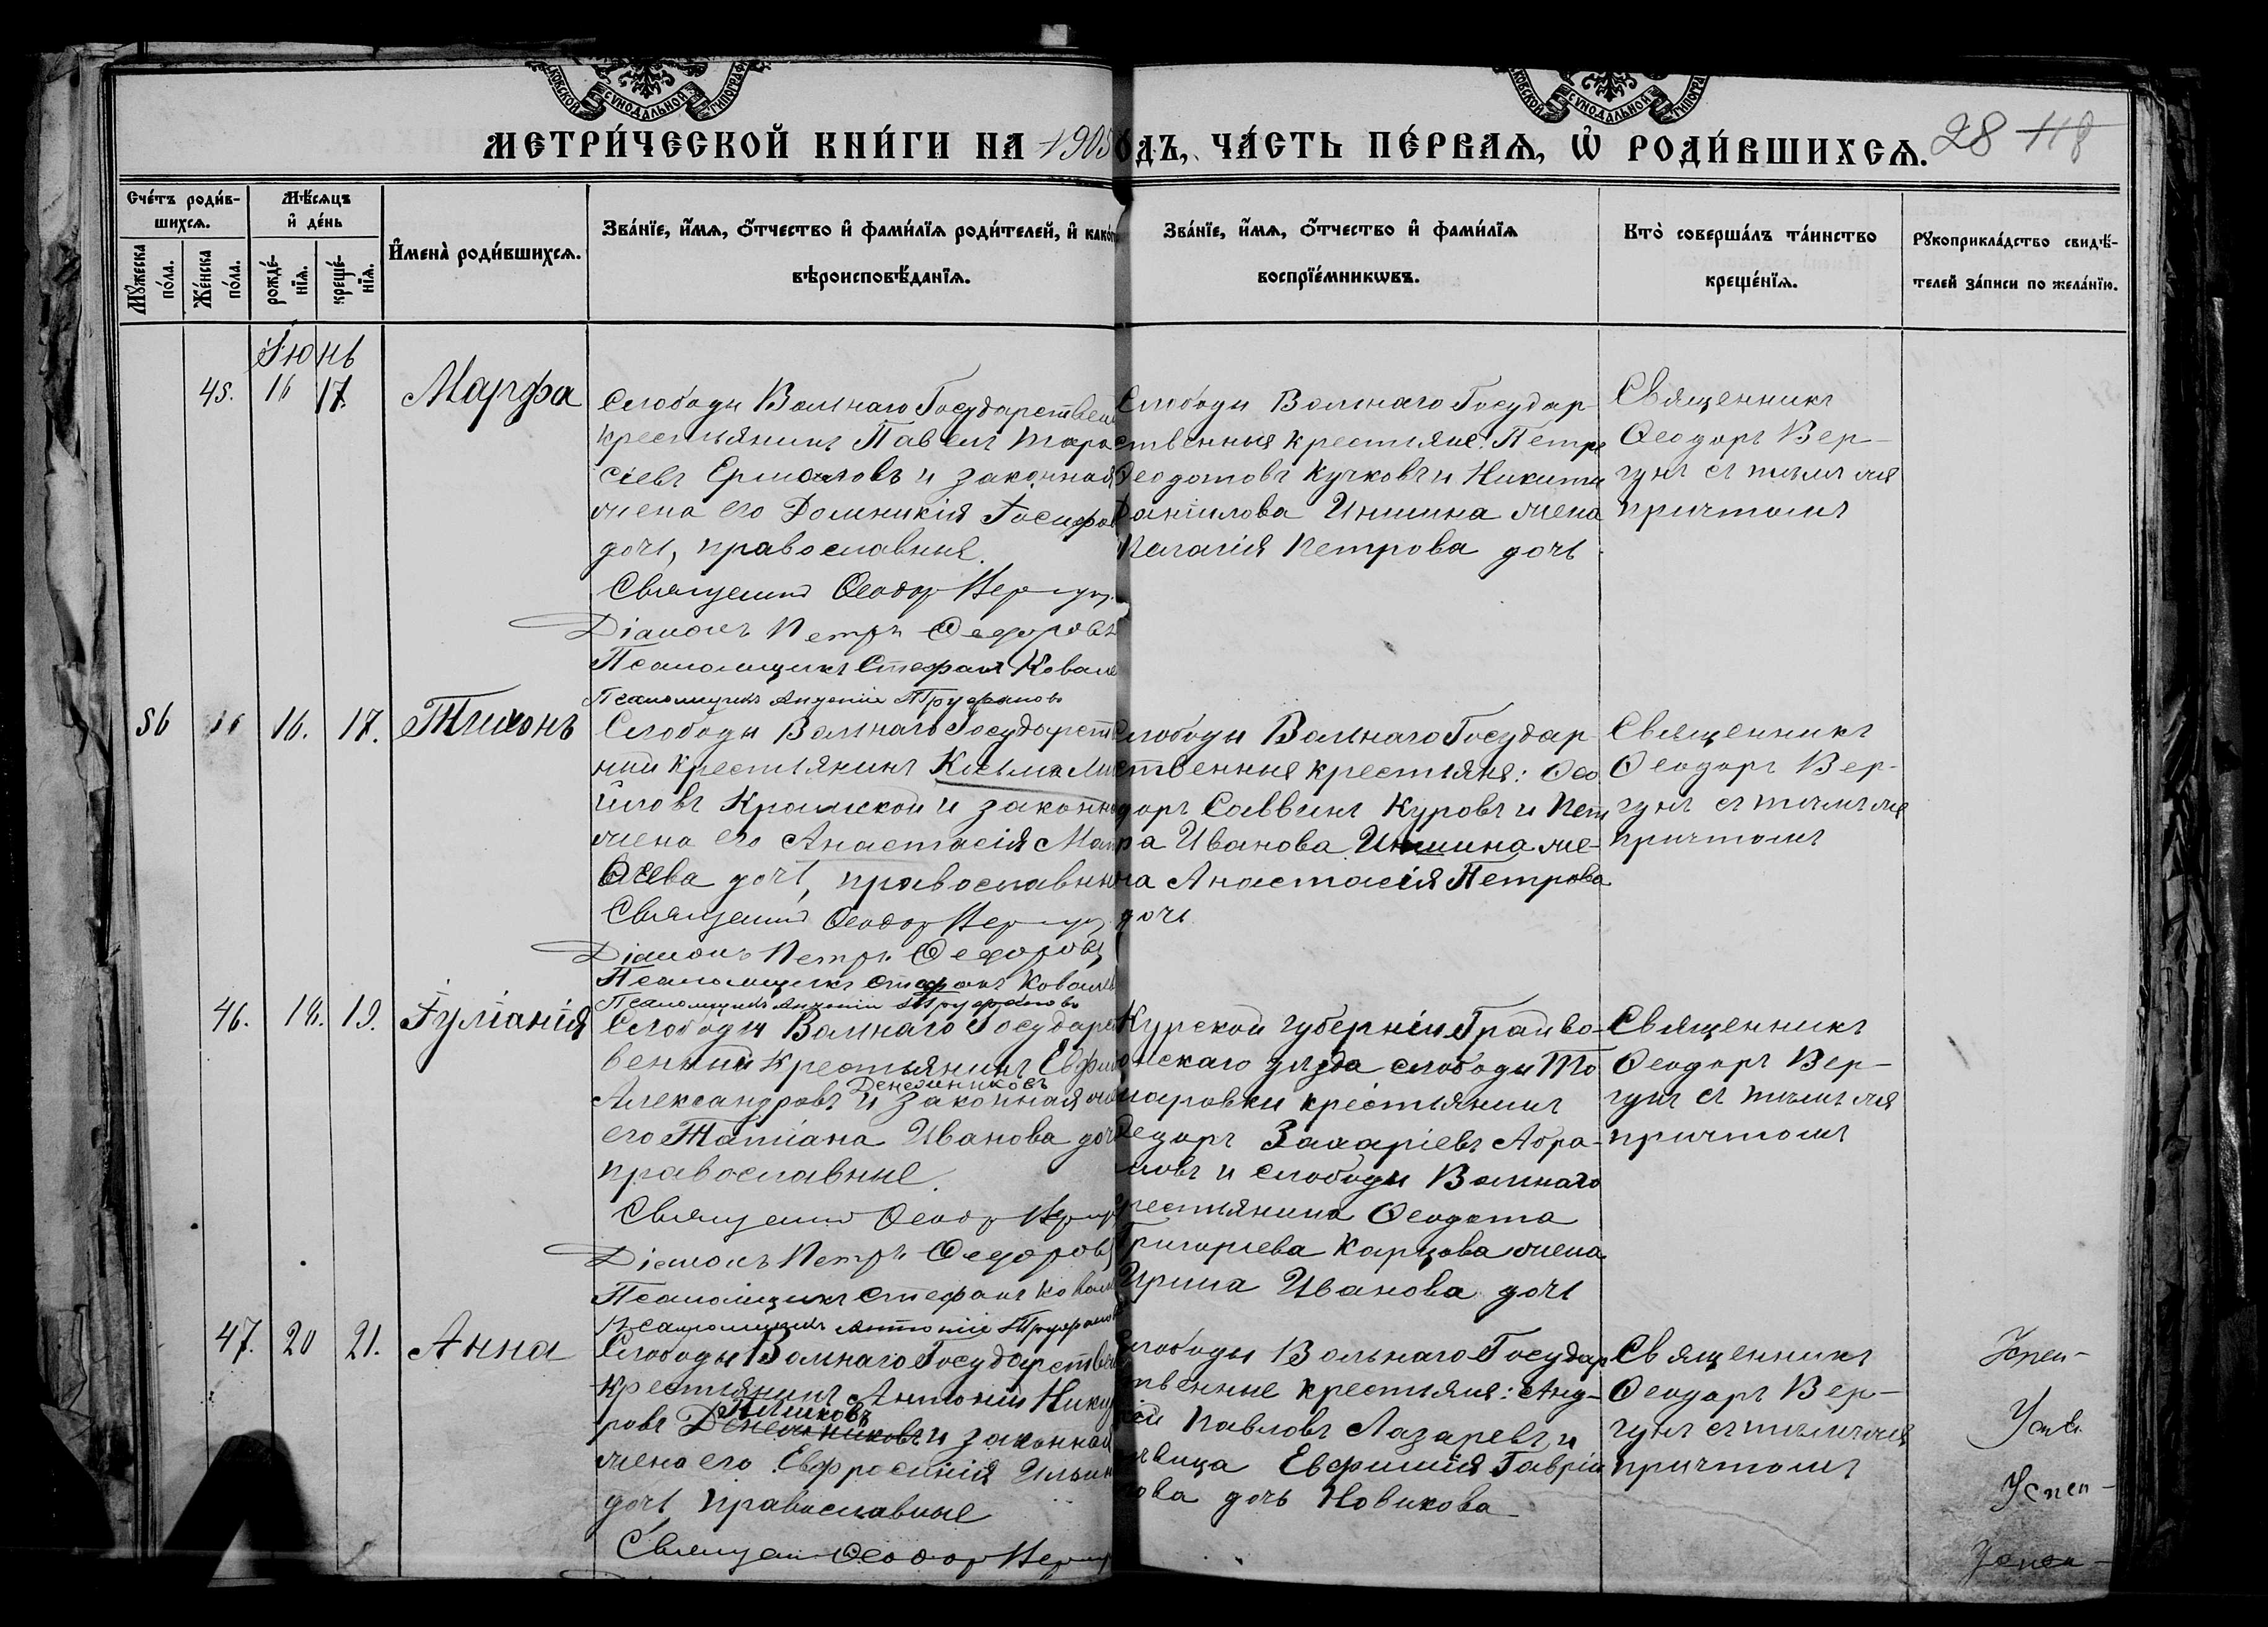 ХАРЬКОВСКОЙ СѴНОДАЛЬНОЙ ТИПОГРАФ
КОВСКОЙ СѴНОДАЛЬНОЙ ТИПОГРАФ
МЕТРИ́ЧЕСКОЙ КНИ́ГИ НА 1905 ОДЪ, ЧА́СТЬ ПЕ́РВАѦ, Ѡ҆ РОДИ́ВШИХСѦ.
28 118
Сче́тъ роди́в-
шихсѧ.
Мꙋ́жеска по́ла.
Же́нска по́ла.
Мѣ́сѧцъ
и҆ де́нь
рожде́-нїѧ.
креще́-нїѧ.
И҆мена̀ роди́вшихсѧ.
Зва́нїе, и҆́мѧ, ѻ҆́тчество и҆ фами́лїѧ роди́телей, и҆ како́г
вѣроисповѣ́данїѧ.
Зва́нїе, и҆́мѧ, ѻ҆́тчество и҆ фами́лїѧ
воспрїе́мникѡвъ.
Кто̀ соверша́лъ та́инство
креще́нїѧ.
Рꙋкоприкла́дство свидѣ́-
телей за́писи по жела́нїю.
Іюнь
45. 16 17. Марфа
Слободы Вольнаго Государствен
крестьянинъ Павелъ Тара
сіевъ Ермаковъ и законная
жена его Домникія Іосифов
дочь, православные.
Священник Ѳеодор Вергун
Діаконъ Петръ Ѳедоровъ
Псаломщикъ Стефанъ Ковале
Псаломщикъ Антоній Труфановъ
Слободы Вольнаго Государ-
ственные крестьяне: Петръ
Ѳеодотовъ Кучковъ и Никиты
Даніилова Иншина жена
Пелагія Петрова дочь
Священникъ
Ѳеодоръ Вер-
гунъ съ тѣмъ же
причтомъ
56 16. 17. Тихонъ
Слободы Вольнаго Государств
ный крестьянинъ Косьма Ми
йловъ Крамской и законн
жена его Анастасія Мат
Ѳѣева дочь, православны
Священник Ѳеодор Вергун
Діаконъ Петръ Ѳедоровъ
Псаломщикъ Стефанъ Ковалев
Псаломщикъ Антоній Труфановъ
Слободы Вольнаго Государ-
ственные крестьяне: Ѳео
доръ Саввинъ Куровъ и Пет
ра Иванова Иншина же-
на Анастасія Петрова
дочь
Священникъ
Ѳеодоръ Вер-
гунъ съ тѣмъ же
причтомъ
46. 18. 19. Іуліанія
Слободы Вольнаго Государст
венный крестьянинъ Евфим
Денежниковъ
Александровъ и законная же
его Татіана Иванова дочь
православные.
Священник Ѳеодор Вергун
Діаконъ Петръ Ѳедоровъ
Псаломщикъ Стефанъ Ковале
Псаломщикъ Антоній Труфановъ
Курской губерніи Грайво-
онскаго уѣзда слободы То
маровки крестьянинъ
Ѳедоръ Захаріевъ Абра-
мовъ и слободы Вольнаго
крестьянина Ѳеодота
Григорьева Карцова жена
Ирина Иванова дочь
Священникъ
Ѳеодоръ Вер-
гунъ съ тѣмъ же
причтомъ
47. 20 21. Анна
Слободы Вольнаго Государствен
крестьянинъ Антоній Никиф
ровъ Денежниковъ и законная
жена его Евфросинія Ильин
дочь православные
Священ Ѳеодор Вергун
Слободы Вольнаго Государ
ственные крестьяне: Анд-
рей Павловъ Лазаревъ и
дѣвица Евфимія Гавріи
лова дочь Новикова
Священникъ
Ѳеодоръ Вер-
гунъ съ тѣмъ же
причтомъ
Успен-
Успен-